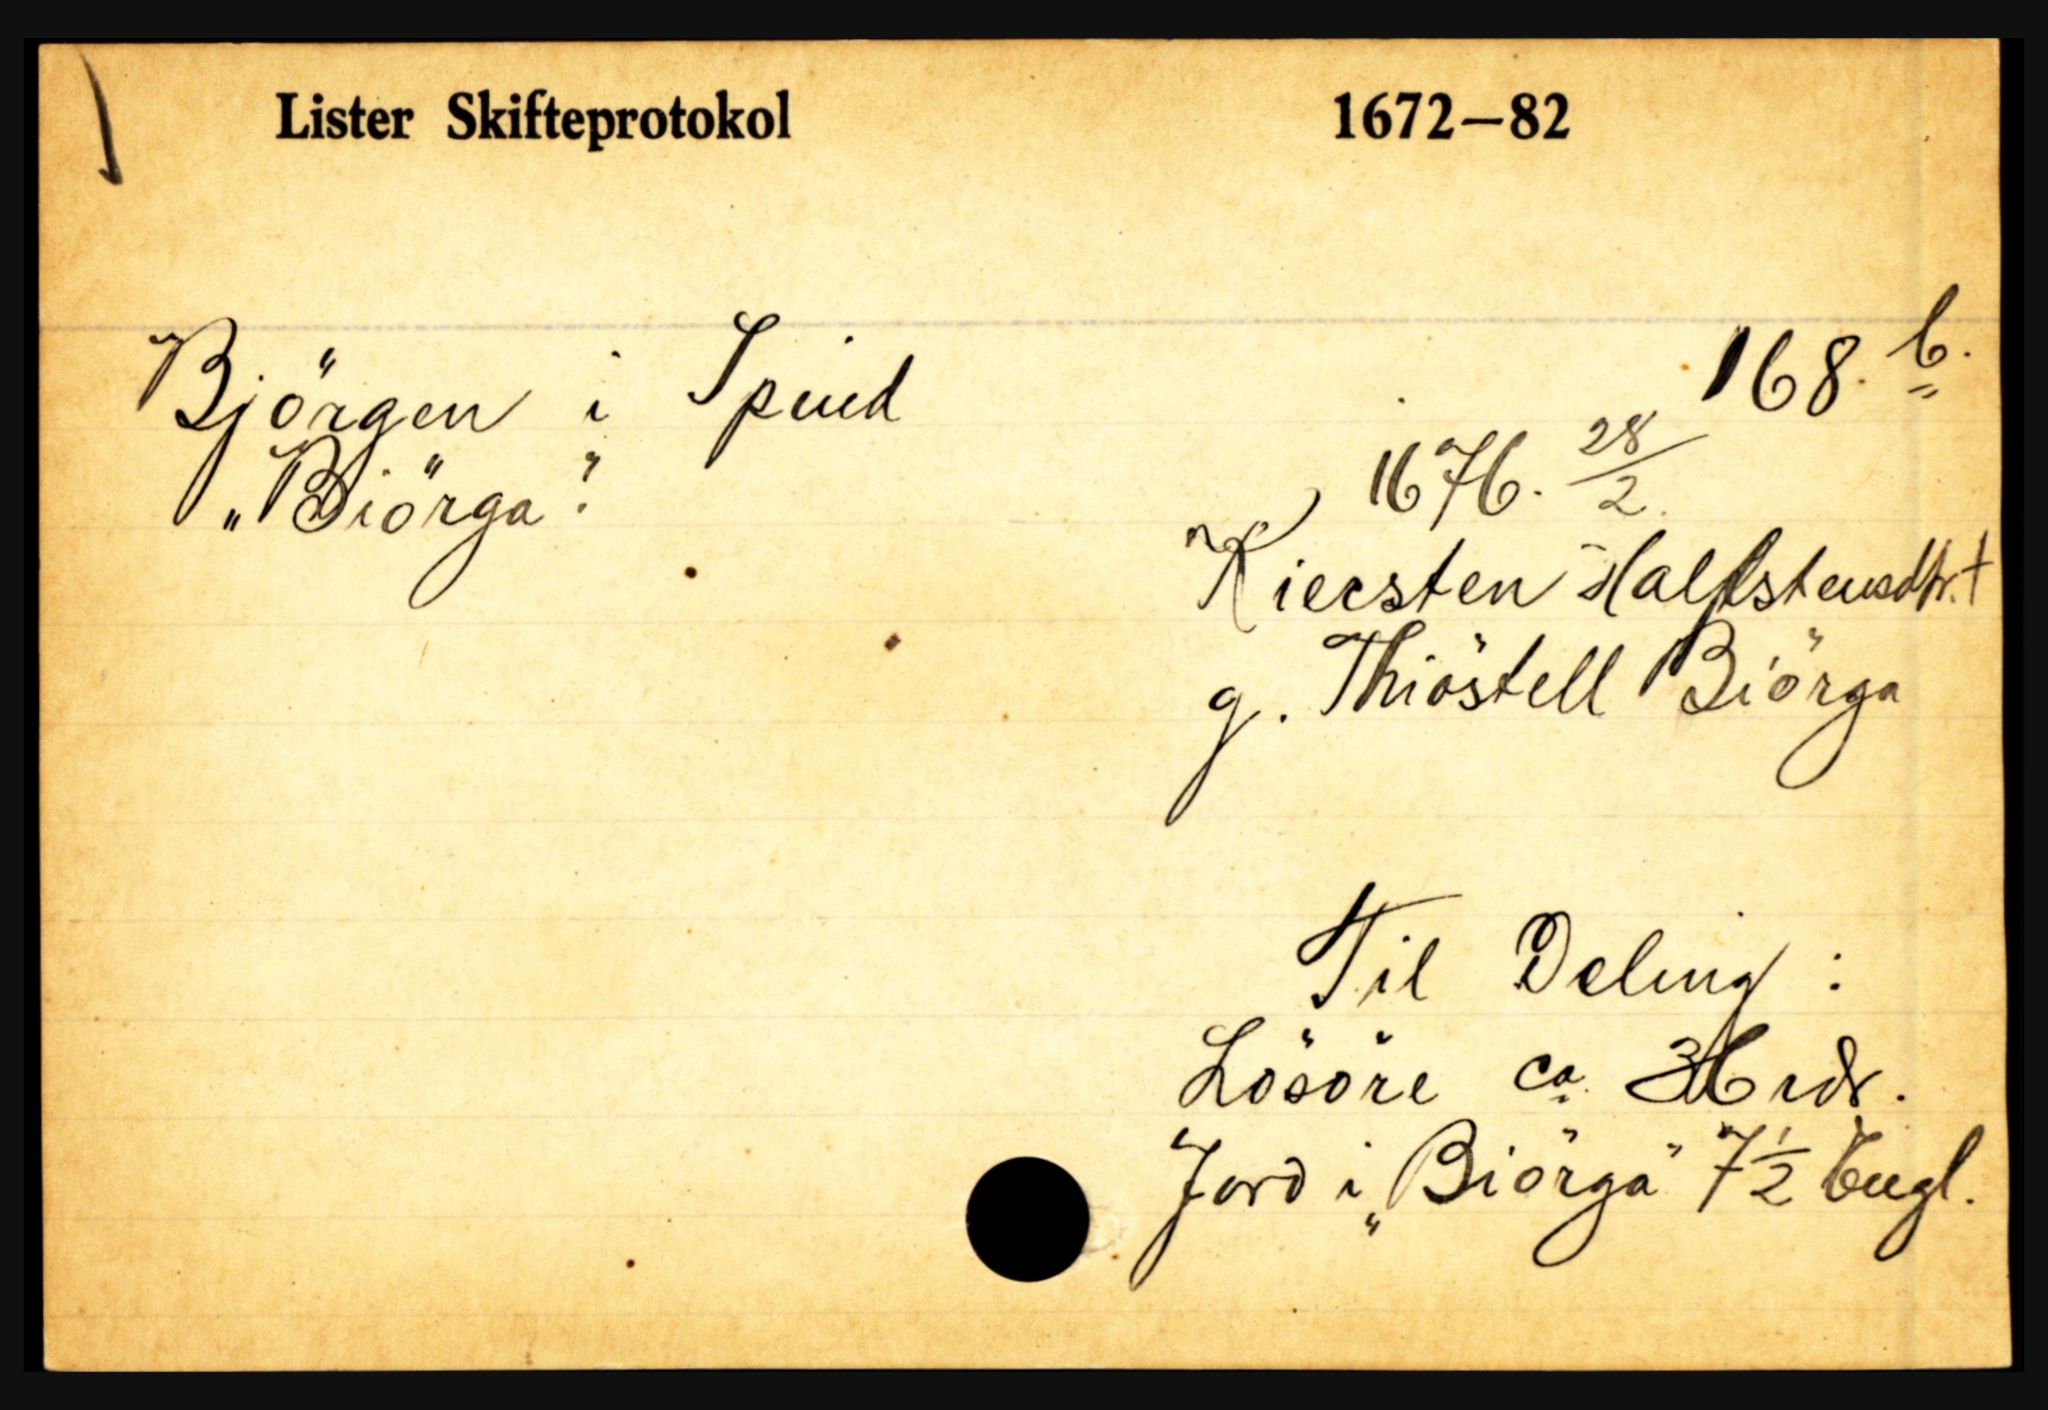 Lister Skifteprotokol 1672–82
168.b.
Björgen i Spind
1676. 28/2.
„Biörga”:
Kiersten Halfstensdtr. †
g. Thiöstell Biörga
Til Deling:
Lösöre ca 36 rdr.
Jord i „Biörga” 7 1/2 Eugl.